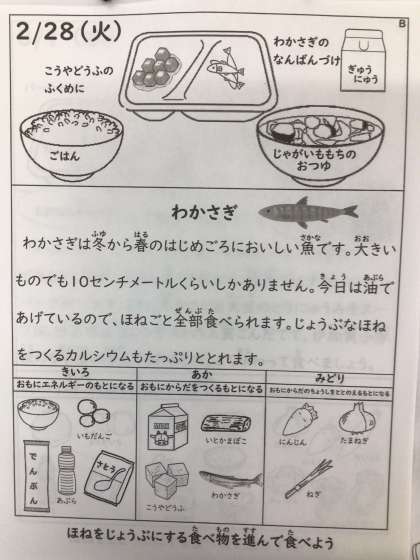 B
2/28(火)
こうやどうふの
ふくめに
わかさぎの
なんばんづけ
ぎゅう
にゅう
ごはん
じゃがいももちの
おつゆ
わかさぎ
わかさぎは冬から春のはじめごろにおいしい魚です。大きい
ものでも10センチメートルくらいしかありません。今日は油で
あげているので、ほねごと全部食べられます。じょうぶなほね
をつくるカルシウムもたっぷりととれます。
きいろ
おもにエネルギーのもとになる
あか
おもにからだをつくるもとになる
みどり
おもにからだのちょうしをととのえるもとになる
いもだんご
でんぷん
あぶら
さとう
いとかまぼこ
こうやどうふ
わかさぎ
にんじん
たまねぎ
ねぎ
ほねをじょうぶにする食べ物を進んで食べよう